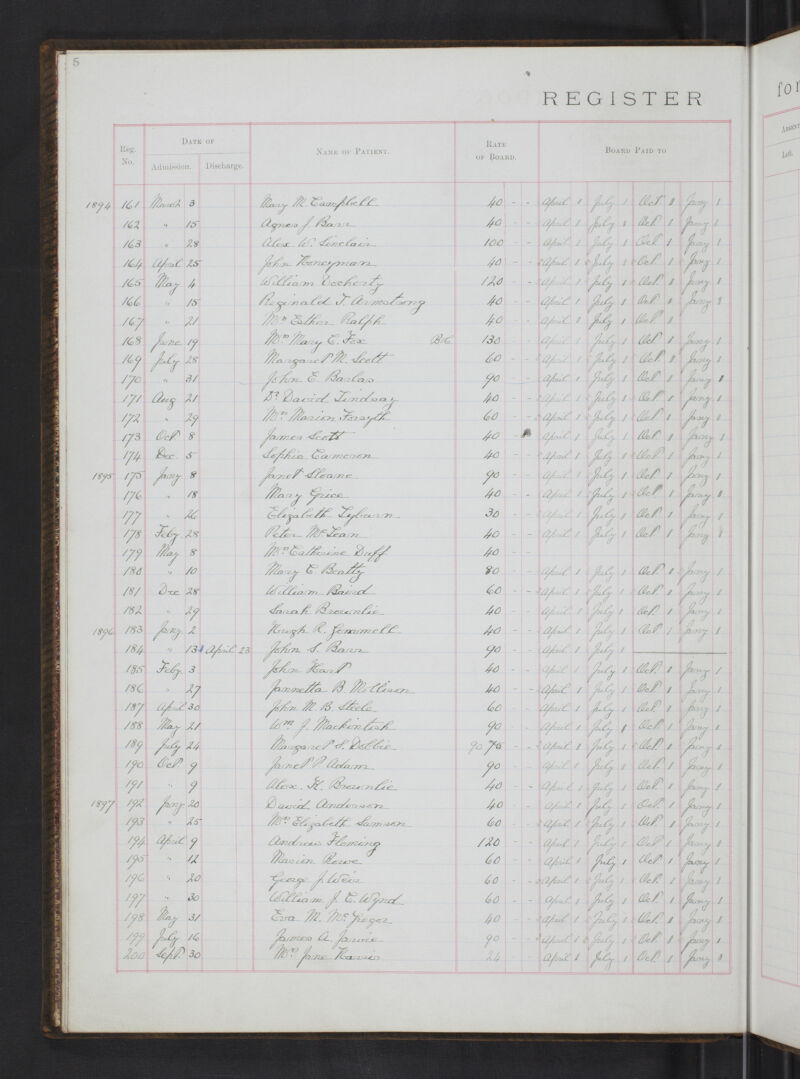 5
REGISTER
for
Reg. No. DATE OF NAME OF PATIENT. RATE OF BOARD. BOARD PAID TO
Admission. Discharge.
ABSENT
Left.
1894 161 March 3 Mary M. Campbell 40 - - April 1 July 1 Oct 1 Jany 1
162 " 15 Agnes J. Barr 40 - - April 1 July 1 Oct 1 Jany 1
163 " 28 Alex W. Sinclair 100 - - April 1 July 1 Oct 1 Jany 1
164 April 25 John Honeyman 40 - - April 1 July 1 Oct 1 Jany 1
165 May 4 William Docherty 120 - - April 1 July 1 Oct 1 Jany 1
166 " 15 Reginald T. Armstrong 40 - - April 1 July 1 Oct 1 Jany 1
167 " 21 Mrs Esther Ralph 40 - - April 1 July 1 Oct 1
168 June 19 Mrs Mary C. Fox 130 - - April 1 July 1 Oct 1 Jany 1
169 July 28 Margaret M. Scott 60 - - April 1 July 1 Oct 1 Jany 1
170 " 31 John E. Barlas 90 - - April 1 July 1 Oct 1 Jany 1
171 Aug 21 Dr David Lindsay 40 - - April 1 July 1 Oct 1 Jany 1
172 " 29 Mrs Marion Forsyth 60 - - April 1 July 1 Oct 1 Jany 1
173 Oct 8 James Scott 40 - April 1 July 1 Oct 1 Jany 1
174 Dec 5 Sophia Cameron 40 - - April 1 July 1 Oct 1 Jany 1
1895 175 Jany 8 Janet Sloane 90 - - April 1 July 1 Oct 1 Jany 1
176 " 18 Mary Grice 40 - - April 1 July 1 Oct 1 Jany 1
177 " 26 Elizabeth Lyburn 30 - - April 1 July 1 Oct 1 Jany 1
178 Feby 28 Peter McLean 40 - - April 1 July 1 Oct 1 Jany 1
179 May 8 Mrs Catherine Duff 40 - -
180 " 10 Mary C. Beatty 80 - - April 1 July 1 Oct 1 Jany 1
181 Dec 28 William Baird 60 - - April 1 July 1 Oct 1 Jany 1
182 " 29 Sarah Brownlie 40 - - April 1 July 1 Oct 1 Jany 1
1896 183 Jany 2 Hugh R. Gemmell 40 - - April 1 July 1 Oct 1 Jany 1
184 " 13 April 23 John S. Barr 90 - - April 1 July 1
185 Feby 3 John Hart 40 - - April 1 July 1 Oct 1 Jany 1
186 " 27 Jannetta B 40 - - April 1 July 1 Oct 1 Jany 1
187 April 30 John M. B. Steele 60 - - April 1 July 1 Oct 1 Jany 1
188 May 21 Wm J. Mackintosh 90 - - April 1 July 1 Oct 1 Jany 1
189 July 24 Margaret S. Dobbie 90 75 - - April 1 July 1 Oct 1 Jany 1
190 Oct 9 Janet P Adam 90 - - April 1 July 1 Oct 1 Jany 1
191 " 9 Alex. H. Brownlie 40 - - April 1 July 1 Oct 1 Jany 1
1897 192 Jany 20 David Anderson 40 - - April 1 July 1 Oct 1 Jany 1
193 " 25 Mrs Elizabeth Samson 60 - - April 1 July 1 Oct 1 Jany 1
194 April 9 Andrew Fleming 120 - - April 1 July 1 Oct 1 Jany 1
195 " 12 Marion Rowe 60 - - April 1 July 1 Oct 1 Jany 1
196 " 20 George J Weir 60 - - April 1 July 1 Oct 1 Jany 1
197 " 30 William J. C. Wynd 60 - - April 1 July 1 Oct 1 Jany 1
198 May 31 Eva M. McGregor 40 - - April 1 July 1 Oct 1 Jany 1
199 July 16 James A. Jarvie 90 - - April 1 July 1 Oct 1 Jany 1
200 Sept 30 Mrs Jane Harris 24 - - April 1 July 1 Oct 1 Jany 1